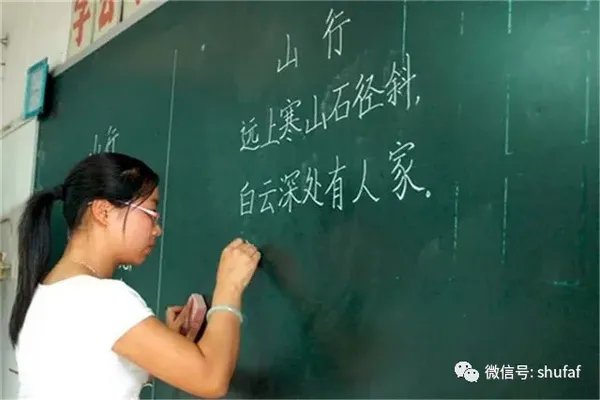 山行
远上寒山石径斜,
白云深处有人家.
山行
微信号: shufaf